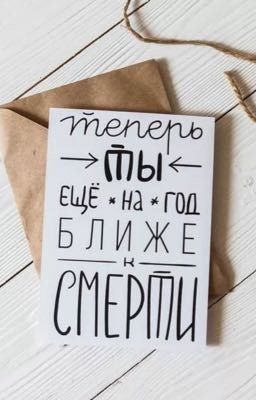 теперь
ты
ЕЩЁ на ГОД
БЛИЖЕ
к
СМЕРТИ